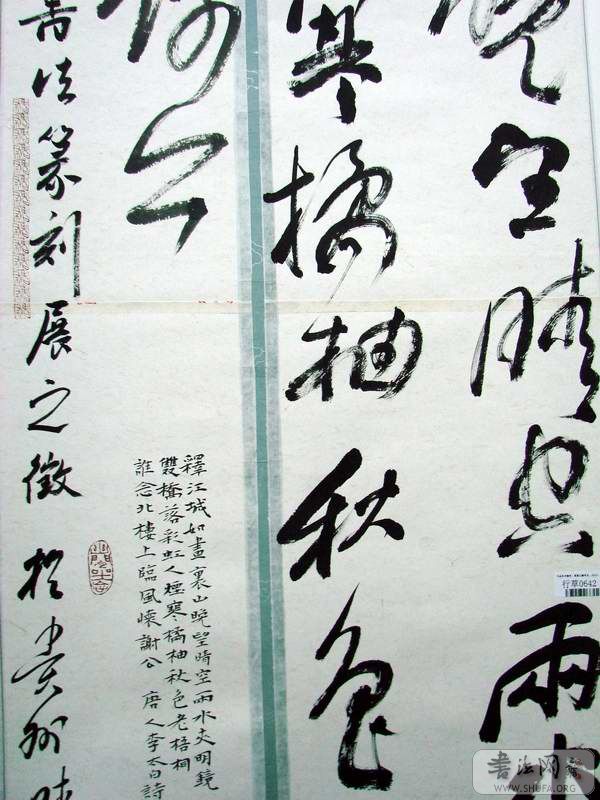 望晴空兩
寒橘柚秋色
公
釋江城如畫裏山晚望晴空兩水夾明鏡
雙橋落彩虹人煙寒橘柚秋色老梧桐
誰念北樓上臨風懷謝公 唐人李太白詩
書法篆刻展之徵 於貴州
行草0642
書法网
WWW.SHUFA.ORG